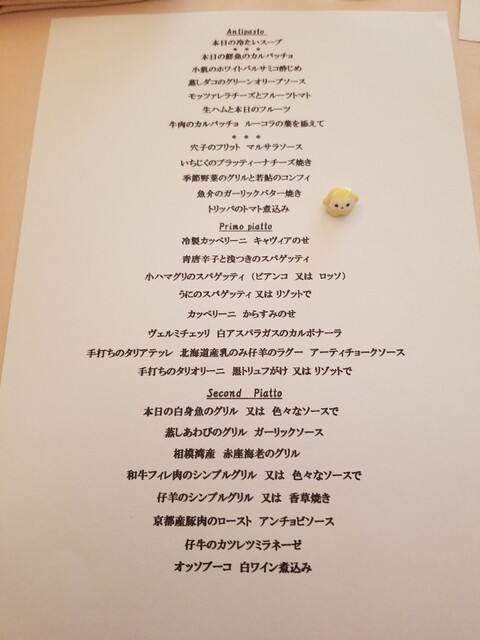 Antipasto
本日の冷たいスープ
* * *
本日の鮮魚のカルパッチョ
小肌のホワイトバルサミコ酢じめ
蒸しダコのグリーンオリーブソース
モッツァレラチーズとフルーツトマト
生ハムと本日のフルーツ
牛肉のカルパッチョ ルーコラの葉を添えて
* * *
穴子のフリット マルサラソース
いちじくのブラッティーナチーズ焼き
季節野菜のグリルと若鮎のコンフィ
魚介のガーリックバター焼き
トリッパのトマト煮込み
Primo piatto
冷製カッペリーニ キャヴィアのせ
青唐辛子と浅つきのスパゲッティ
小ハマグリのスパゲッティ (ビアンコ 又は ロッソ)
うにのスパゲッティ 又は リゾットで
カッペリーニ からすみのせ
ヴェルミチェッリ 白アスパラガスのカルボナーラ
手打ちのタリアテッレ 北海道産乳のみ仔羊のラグー アーティチョークソース
手打ちのタリオリーニ 黒トリュフがけ 又は リゾットで
Second Piatto
本日の白身魚のグリル 又は 色々なソースで
蒸しあわびのグリル ガーリックソース
相模湾産 赤座海老のグリル
和牛フィレ肉のシンプルグリル 又は 色々なソースで
仔羊のシンプルグリル 又は 香草焼き
京都産豚肉のロースト アンチョビソース
仔牛のカツレツミラネーゼ
オッソブーコ 白ワイン煮込み